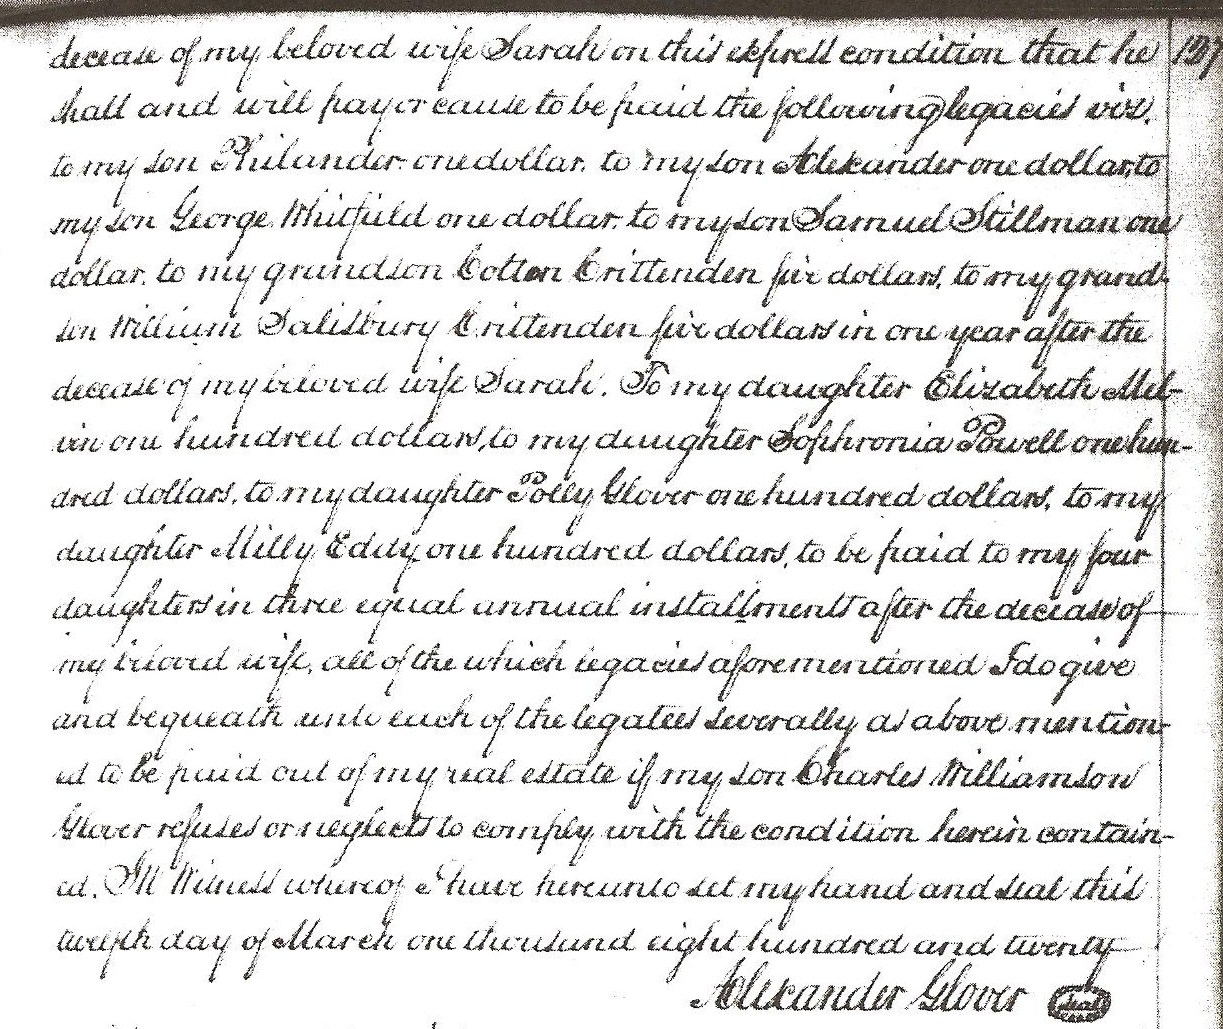 decease of my beloved wife Sarah on this express condition that he
shall and will pay or cause to be paid the following legacies viz.
to my son Philander one dollar. to my son Alexander one dollar, to
my son George Whitfield one dollar. to my son Samuel Stillman one
dollar. to my grandson Cotton Crittenden five dollars, to my grand-
son William Salisbury Crittenden five dollars in one year after the
decease of my beloved wife Sarah. To my daughter Elizabeth Mel-
vin one hundred dollars, to my daughter Sophronia Powell one hun-
dred dollars, to my daughter Polly Glover one hundred dollars, to my
daughter Milly Eddy one hundred dollars, to be paid to my four
daughters in three equal annual installments after the decease of
my beloved wife, all of the which legacies aforementioned I do give
and bequeath unto each of the legatees severally as above mention-
ed to be paid out of my real estate if my son Charles Williamson
Glover refuses or neglects to comply with the condition herein contain-
ed. In Witness whereof I have hereunto set my hand and seal this
twelfth day of March one thousand eight hundred and twenty
Alexander Glover seal